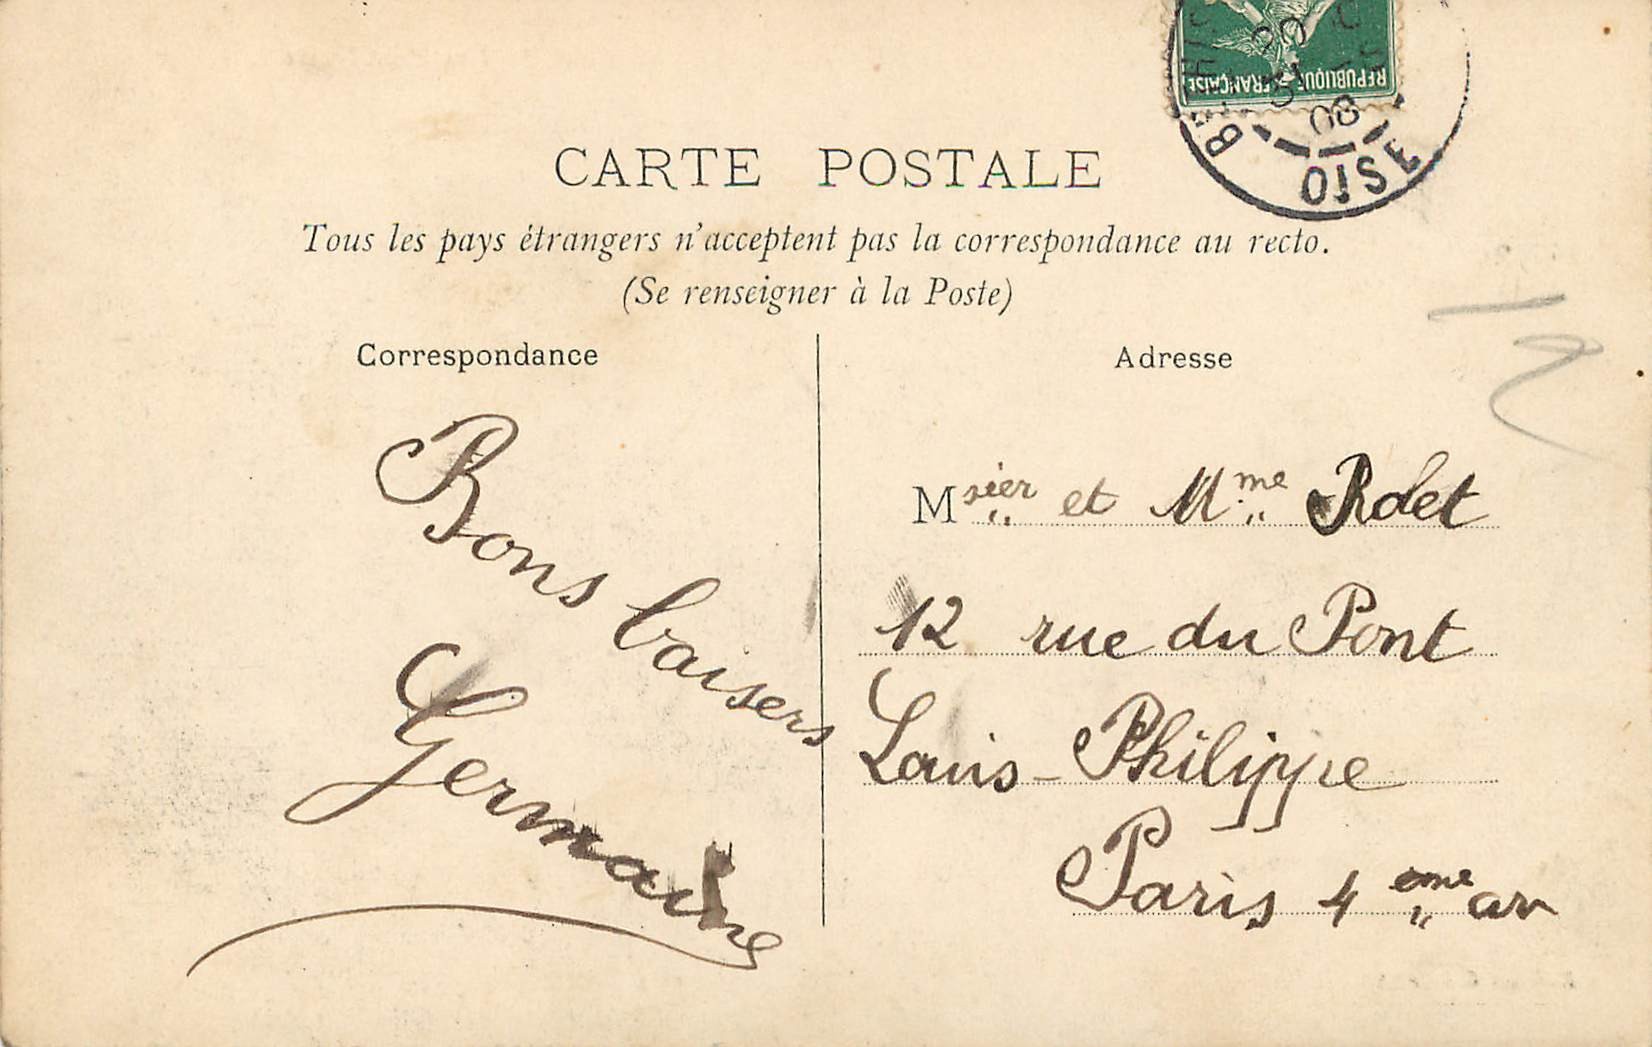 RÉPUBLIQUE FRANÇAISE
08
OISE
CARTE POSTALE
Tous les pays étrangers n'acceptent pas la correspondance au recto.
(Se renseigner à la Poste)
Correspondance
Bons baisers
Germaine
Adresse
Msier et Mme Rolet
12 rue du Pont
Louis-Philippe
Paris 4 eme arr